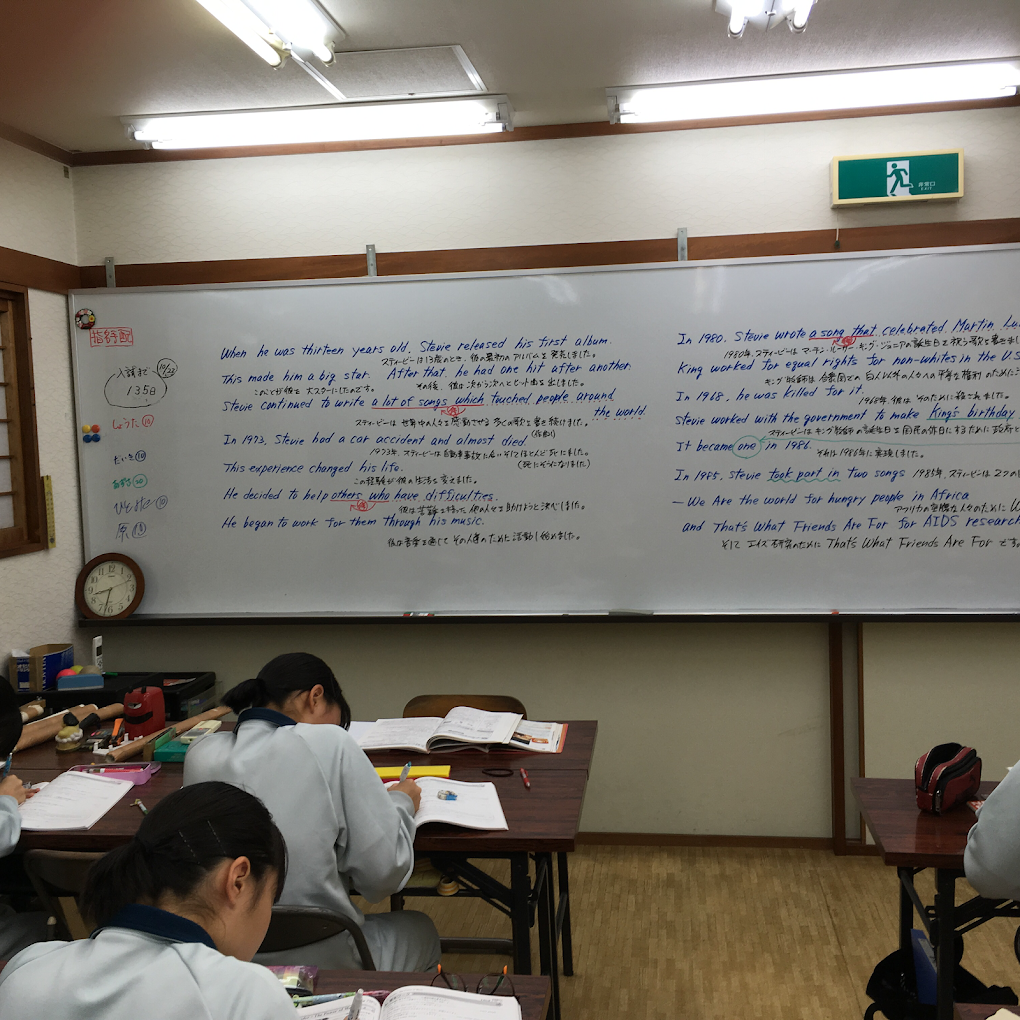 非常口
EXIT
指名手配
入試まで 10/23
135日
しょうた ⑩
だいき ⑩
⑩
⑩
原
When he was thirteen years old, Stevie released his first album.
スティービーは13歳のとき、彼の最初のアルバムを発売しました。
This made him a big star. After that, he had one hit after another.
このことが彼を大スターにしたのです。 その後、彼は次から次へとヒットを出しました。
Stevie continued to write a lot of songs which touched people around
the world.
スティービーは世界中の人々を感動させる多くの歌を書き続けました。
In 1973, Stevie had a car accident and almost died.
1973年、スティービーは自動車事故に会いそしてほとんど死にました。
(死にそうになりました)
This experience changed his life.
この経験が彼の生活を変えました。
He decided to help others who have difficulties.
彼は苦難を持った他の人々を助けようと決心しました。
He began to work for them through his music.
彼は音楽を通じてその人達のために活動し始めました。
In 1980, Stevie wrote a song that celebrated Martin Lu
1980年、スティービーはマーチン・ルーサー・キング・ジュニアの誕生日を祝う歌を書きまし
King worked for equal rights for non-whites in the U.S
キング牧師は合衆国での白人以外の人々への平等な権利のために
In 1968, he was killed for it.
1968年、彼はそのために殺されました。
Stevie worked with the government to make King's birthday
スティービーはキング牧師の誕生日を国民の休日にするために政府と
It became one in 1986.
それは1986年に実現しました。
In 1985, Stevie took part in two songs
1985年、スティービーは2つの
— We Are the world for hungry people in Africa
アフリカの空腹な人々のために W
and That's What Friends Are For for AIDS research
そして エイズ研究のために That's What Friends Are For です